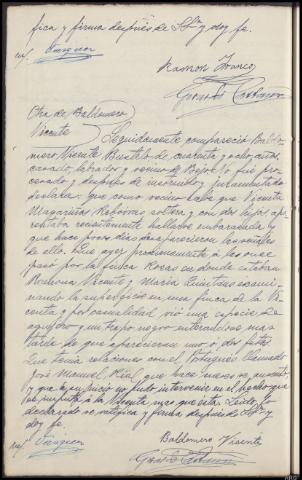 fica y firma después de S.Sª y doy fe.
Ramon Franco
Otra de Baldomero
Vicente / Seguidamente compareció Baldo-
mero Vicente Bustelo de cuarenta y ocho años,
casado, labrador y vecino de
y después de instruido y juramentado
declara: que como vecino sabe que Vicenta
Magariños soltera y con dos hijos, apa-
rentaba recientemente hallarse embarazada y
que hace pocos días desaparecieron las señales
de ello. Que ayer próximamente a las once
pasó por la finca Rozas en donde estaban
Ramona Vicente y Maria Quintans exami-
nando la superficie en una finca de la Vi-
centa y por casualidad vió una especie de
agujero y un trapo negro enterandose mas
tarde de que aparecieran uno ó dos fetos.
Que tenia relaciones con el Portugués llamado
José Manuel Real que hace meses se ausentó
y que á su juicio no pudo intervenir en el hecho que
se imputa á la Vicenta mas que esta. Leido, lo
declarado se ratifica y firma después de S.Sª y
doy fe.
Baldomero Vicente